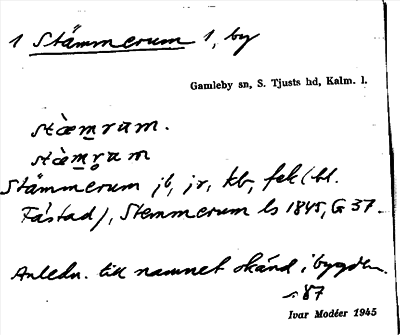 1 Stämmerum 1, by
Gamleby sn, S. Tjusts hd, Kalm. l.
stæ̀m̲rum.
stæ̀m̲r̥um
Stämmerum jb, jr, kb, fek (bl.
Fåstad), Stemmerum ls 1845, G 37.
Anledn. till namnet okänd i bygden.
s 87
Ivar Modéer 1945